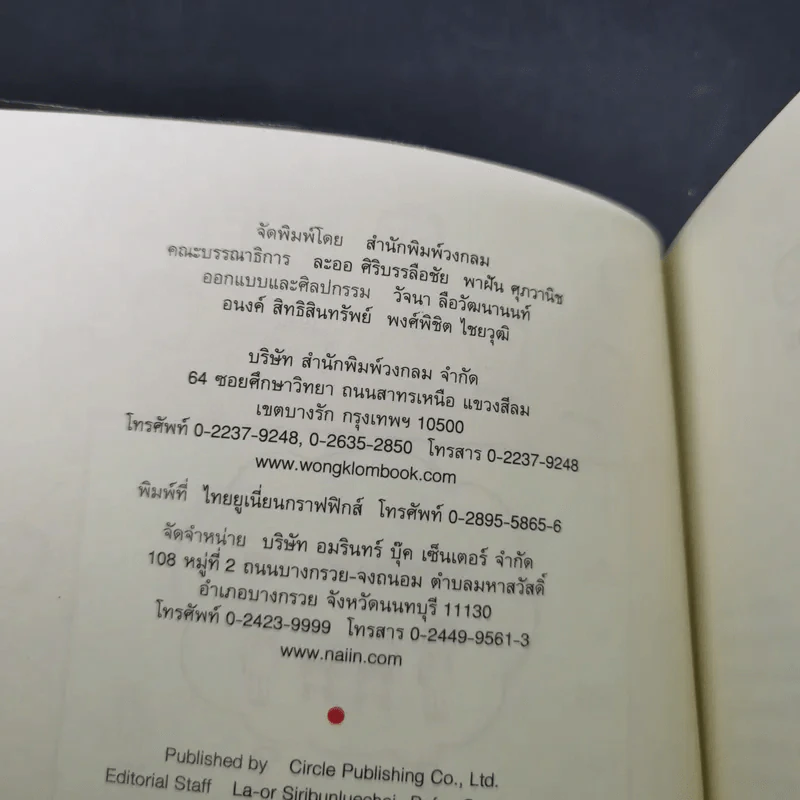 จัดพิมพ์โดย สำนักพิมพ์วงกลม
คณะบรรณาธิการ ละออ ศิริบรรลือชัย พาฝัน ศุภวานิช
ออกแบบและศิลปกรรม วัจนา ลือวัฒนานนท์
อนงค์ สิทธิสินทรัพย์ พงศ์พิชิต ไชยวุฒิ
บริษัท สำนักพิมพ์วงกลม จำกัด
64 ซอยศึกษาวิทยา ถนนสาทรเหนือ แขวงสีลม
เขตบางรัก กรุงเทพฯ 10500
โทรศัพท์ 0-2237-9248, 0-2635-2850 โทรสาร 0-2237-9248
www.wongklombook.com
พิมพ์ที่ ไทยยูเนี่ยนกราฟฟิกส์ โทรศัพท์ 0-2895-5865-6
จัดจำหน่าย บริษัท อมรินทร์ บุ๊ค เซ็นเตอร์ จำกัด
108 หมู่ที่ 2 ถนนบางกรวย-จงถนอม ตำบลมหาสวัสดิ์
อำเภอบางกรวย จังหวัดนนทบุรี 11130
โทรศัพท์ 0-2423-9999 โทรสาร 0-2449-9561-3
www.naiin.com
Published by Circle Publishing Co., Ltd.
Editorial Staff La-or Siribunluechai